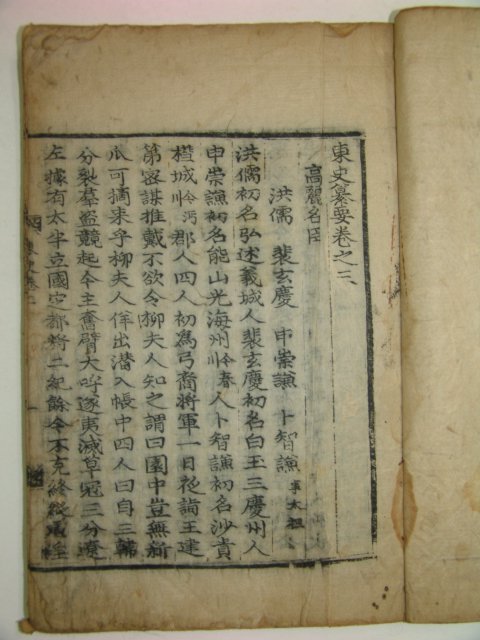 東史纂要卷之三
高麗名臣
洪儒 裴玄慶 申崇謙 卜智謙 事太祖
洪儒初名弘述義城人裴玄慶初名白玉三慶州人
申崇謙初名能山光海州今春人卜智謙初名沙貴
橙城州今沔郡人四人初爲弓裔將軍一日夜詣王建
第密謀推戴不欲令柳夫人知之謂曰園中豈無新
瓜可摘来乎柳夫人佯出潜入帳中四人曰自三韓
分裂羣盗競起今主奮臂大呼遂夷滅草寇三分遼
左據有太半立國定都将二紀餘今不克終縱虐